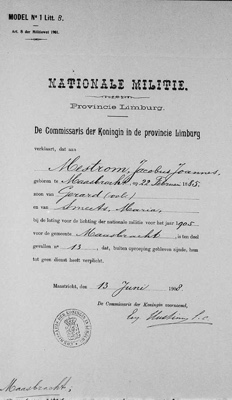 MODEL Nº 1 Litt. B.
Art. 8 der Militiewet 1901.
NATIONALE MILITIE.
Provincie Limburg.
De Commissaris der Koningin in de provincie Limburg
verklaart, dat aan
Mestrom, Jacobus Joannes,
geboren te Maasbracht, 22 Februari 1885,
zoon van Gerard (volt)
en van Smeets, Maria,
bij de loting voor de lichting der nationale militie voor het jaar 1905
voor de gemeente Maasbracht is ten deel
gevallen nº 13, dat, buiten oproeping gebleven zijnde, hem
tot geen dienst heeft verplicht.
Maastricht, den 13 Juni 1908
De Commissaris der Koningin voornoemd,
Maasbracht,